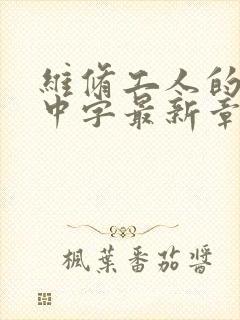 維脩工人的
中字最新章
楓葉番茄醬